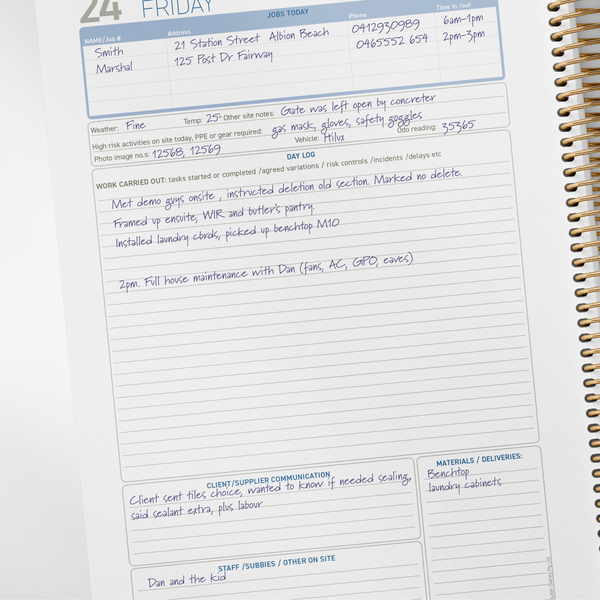 24 FRIDAY
JOBS TODAY
NAME/Job # Address Phone Time in /out
Smith 21 Station Street Albion Beach 0412930989 6am-1pm
Marshal 125 Post Dr Fairway 0465552 654 2pm-3pm
Weather: Fine Temp: 25° Other site notes: Gate was left open by concreter
High risk activities on site today, PPE or gear required: gas mask, gloves, safety goggles
Photo image no.s: 12568, 12569 Vehicle: Hilux Odo reading: 35365
DAY LOG
WORK CARRIED OUT: tasks started or completed /agreed variations / risk controls /incidents /delays etc
Met demo guys onsite , instructed deletion old section. Marked no delete.
Framed up ensuite, WIR and butler's pantry.
Installed laundry cbrds, picked up benchtop M10
2pm. Full house maintenance with Dan (fans, AC, GPO, eaves)
CLIENT/SUPPLIER COMMUNICATION
Client sent tiles choice, wanted to know if needed sealing,
said sealant extra, plus labour
MATERIALS / DELIVERIES:
Benchtop
laundry cabinets
STAFF /SUBBIES / OTHER ON SITE
Dan and the kid